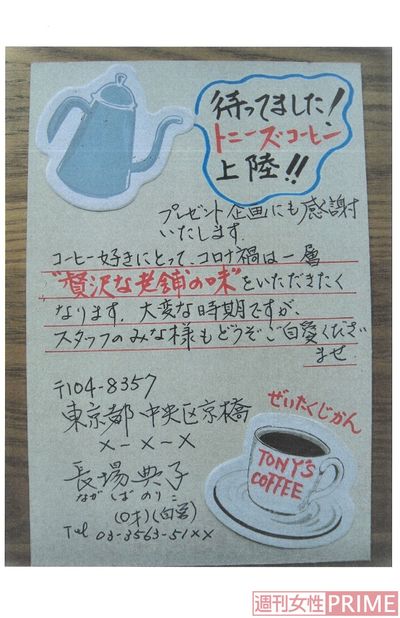 待ってました!
トニーズコーヒー
上陸!!
プレゼント企画にも感謝
いたします.
コーヒー好きにとって、コロナ禍は一層
"贅沢な老舗の味"をいただきたく
なります。大変な時期ですが、
スタッフのみな様もどうぞご自愛くださ
ませ.
〒104-8357
東京都中央区京橋
×-×-×
長場典子
ながしばのりこ
(0才)(自営)
Tel 03-3563-51××
ぜいたくじかん
TONY'S
COFFEE
週刊女性PRIME